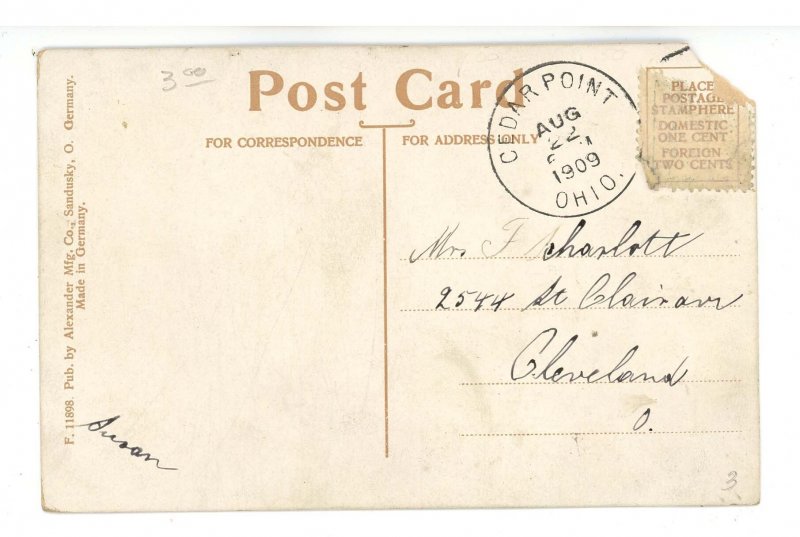 3 00
Post Card
FOR CORRESPONDENCE
FOR ADDRESS ONLY
CEDAR POINT
AUG
22
1909
OHIO.
PLACE
POSTAGE
STAMP HERE
DOMESTIC
ONE CENT
FOREIGN
TWO CENTS
Mrs F Scharlott
2544 St Clair avr
Cleveland
O.
Susan
F. 11898. Pub. by Alexander Mfg. Co., Sandusky, O. Germany.
Made in Germany.
3